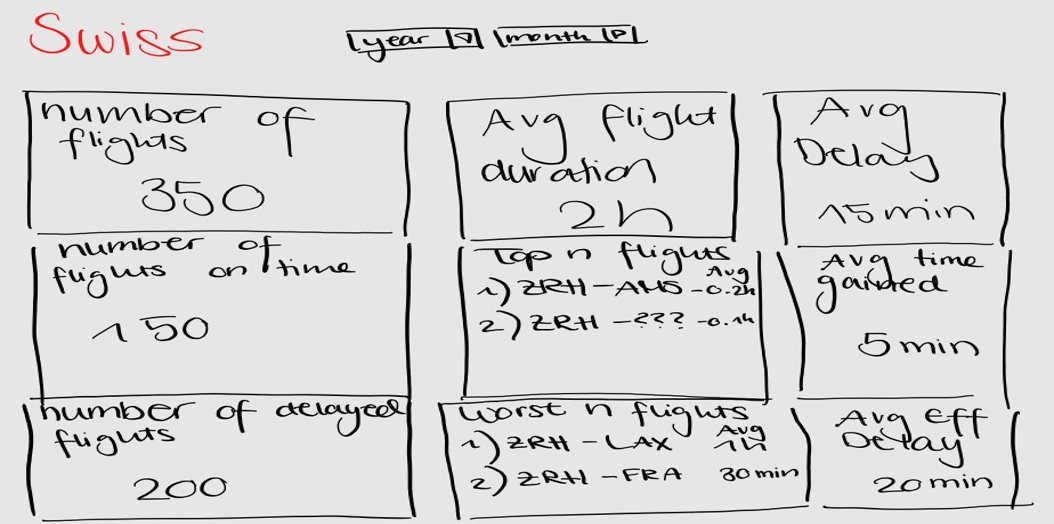 Swiss
year
month
number of
flights
350
Avg flight
duration
2h
Avg
Delay
15min
number of
flights on time
150
Top n flights
Avg
1) ZRH-AMS -0.2h
2) ZRH -??? -0.1h
Avg time
gained
5min
number of delayed
flights
200
Worst n flights
Avg
1) ZRH - LAX 1h
2) ZRH -FRA 30min
Avg eff
Delay
20min